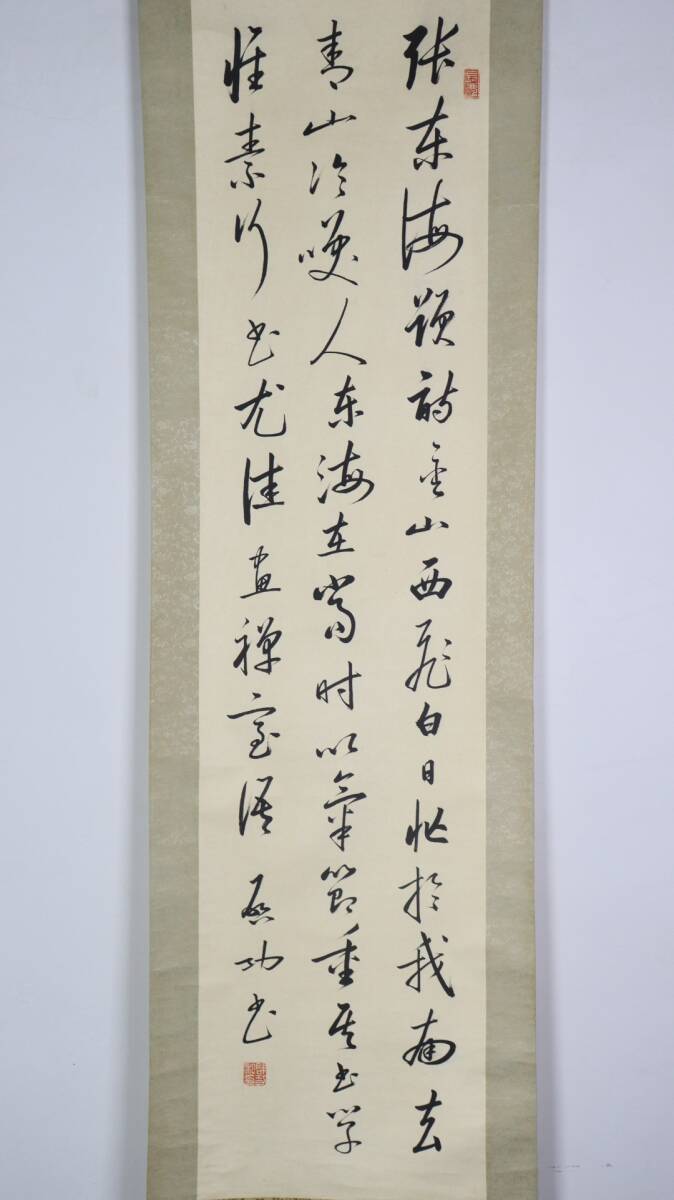 张东海题诗金山西飞白日忙於我南去
青山冷唤人东海在当时以氣節重其书学
怀素行书尤佳画禅室语 启功书